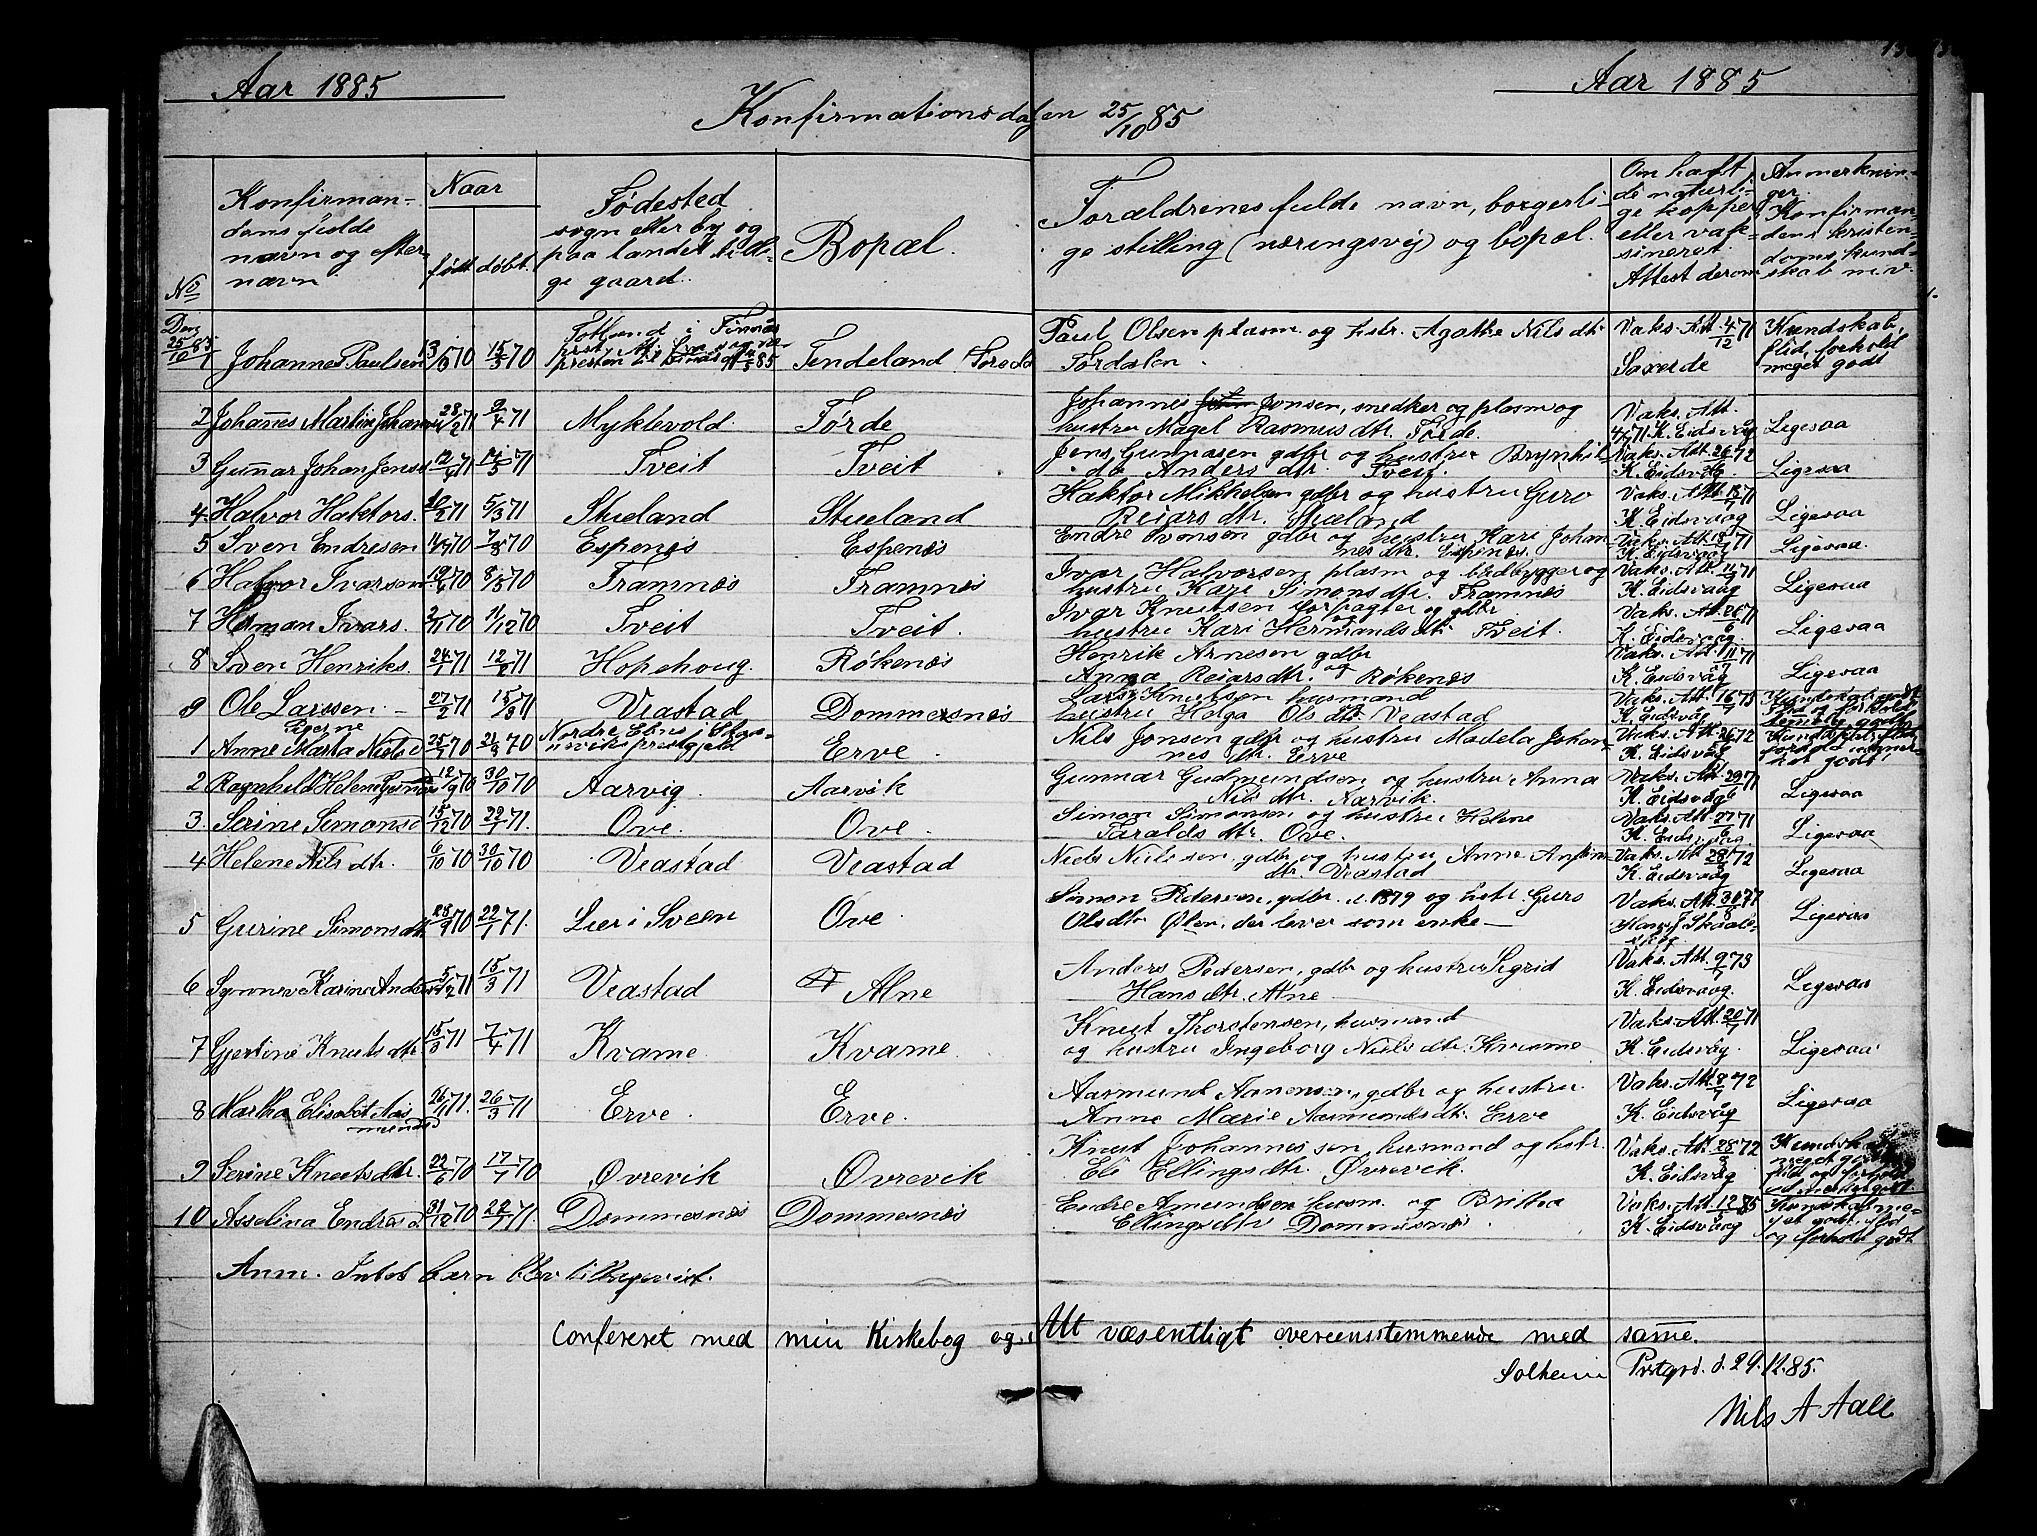 Aar 1885
Aar 1885
Konfirmationsdagen 25/10 85
No
Konfirman-
dens fulde
navn og efter-
navn
Naar
født
døbt
Fødested
sogn eller by og
paa landet tilli-
ge gaard.
Bopæl.
Forældrenes fulde navn, borgerli-
ge stilling (næringsvej) og bopæl.
Om havt
de naturli-
ge kopper
eller vak-
sineret.
Attest derom
Anmerknin-
ger.
Konfirman-
dens kristen-
doms kund-
skab m.v.
Johannes Paulsen 70 70 Tendeland
Paul Olsen plasm. og hstr. Agathe Nils dtr. Vaks. Att. 4/12 71 Kundskab,
flid, forhold
meget godt
2 Johannes Martin 28/2 71 9/4 71 Myklevold. Førde
Johannes Jonsen, snedker og plasm og
hustru Magel Rasmus dtr. Førde. Vaks. Att. K. Eidsvåg Ligesaa
3 Gunnar Johan 71 71 Tveit Tveit
Jens Gunnasen gdbr og hustru Brynhil-
da Anders dtr. Tveit. Vaks. Att. 72 K. Eidsvåg Ligesaa
4. Halvor Haktors. 20/2 71 5/3 71 Stueland Stueland
Haktor Mikkelsen gdbr og hustru Guro
Reiars dtr. Stueland Vaks. Att. 71 K. Eidsvaag Ligesaa
5 Sven Endresen 70 7/8 70 Espenæs Espenæs
Endre Svensen gdbr og hustru Kari Johan
nes dtr. Espenæs. Vaks. Att. 71 K. Eidsvaag Ligesaa.
6 Halvor Ivarsen 70 8/5 70 Framnæs Framnæs
Ivar Halvorsen plasm og bådbygger og
hustru Kari Simons dtr. Framnæs Vaks. Att. 71 K. Eidsvaag Ligesaa
7 Herman Ivars. 2/11 70 11/12 70 Tveit Tveit.
Ivar Knutsen forpagter og gdbr
hustru Kari Hermands dtr. Tveit. Vaks. Att. 26/6 71 K. Eidsvaag. Ligesaa
8 Sven Henriks. 24/1 71 71 Hopehoug. Røkenæs
Henrik Arnesen gdbr og
Anna Reiarsdtr. Røkenæs Vaks. Att. 71 K. Eidsvåg Ligesaa
9 Ole Larssen. 27/2 71 15/3 71 Veastad Dommersnæs
Lars Knutsen husmand
hustru Helga Ols dtr. Veastad Vaks. Att. K. Eidsvåg
Pigerne
1 Anne Marta Niels d 70 21/8 70 Nordre Erve
Nils Jonsen gdbr og hustru Madela Johan-
nes dtr. Erve Vaks. Att. 72 K. Eidsvåg
2 Ragnhild Helene 12/9 70 30/10 70 Aarvig. Aarvik
Gunnar Gudmundsen og hustru Anna
Nils dtr. Aarvik. Vaks. Att. 29/6 71 K. Eidsvåg Ligesaa
3. Serine Simonsd 15/12 70 22/1 71. Ove. Ove.
Simon Simonsen og hustru Helene
Taralds dtr. Ove. Vaks. Att. 27/6 71 Ligesaa
4 Helene Nils dtr. 6/10 70 30/10 70 Veastad Veastad
Niels Nielsen gdbr og hustru Anne
dtr. Veastad Vaks. Att. 72 K. Eidsvaag Ligesaa
5 Gurine Simons dtr. 28/9 70 22/1 71. Lier i Sveen Ove.
Simon Pedersen, gdbr. d. 1879 og hstr. Guro
Olsdtr. der lever som enke — Vaks. Att. 77 Ligesaa
6 Synneve Karine Anders 71 15/3 71 Veastad Alne
Anders Pedersen, gdbr og hustru Sigrid
Hans dtr. Alne Vaks. Att. 9/7 73 K. Eidsvaag. Ligesaa
7 Gjertine Knuts dtr. 15/3 71 7/4 71 Kvame. Kvame.
Knut Thorstensen, husmand
og hustru Ingeborg Niels dtr. Kvame Vaks. Att. 20/7 71 K. Eidsvåg. Ligesaa
8 Martha Elisabet Aas
munds 26/1 71. 26/3 71 Erve. Erve.
Aasmund gdbr og hustru
Anne Marie Aasmunds dtr. Erve Vaks. Att. 8/7 72 K. Eidsvåg Ligesaa
9 Serine Knutsdtr. 22/6 70 17/7 70 Øvrevik Øvrevik
Knut Johannessen, husmand og hstr.
Eli Ellings dtr. Øvrevik. Vaks. Att. 28/8 72 K. Eidsvåg
10 Asselina Endres d 31/12 70 22/1 71. Dommesnæs Dommesnæs
Endre Amundsen husm. og Britha
Ellings dtr Dommesnæs. Vaks. Att. 85 K. Eidsvaag Kundskab me-
get godt, flid
og forhold godt
Anm. Intet barn blev tilbagevist.
Confereret med min Kirkebog og væsentligt overeensstemmende med samme.
Solheim Prstgrd. d. 29.12.85.
Nils A Aall